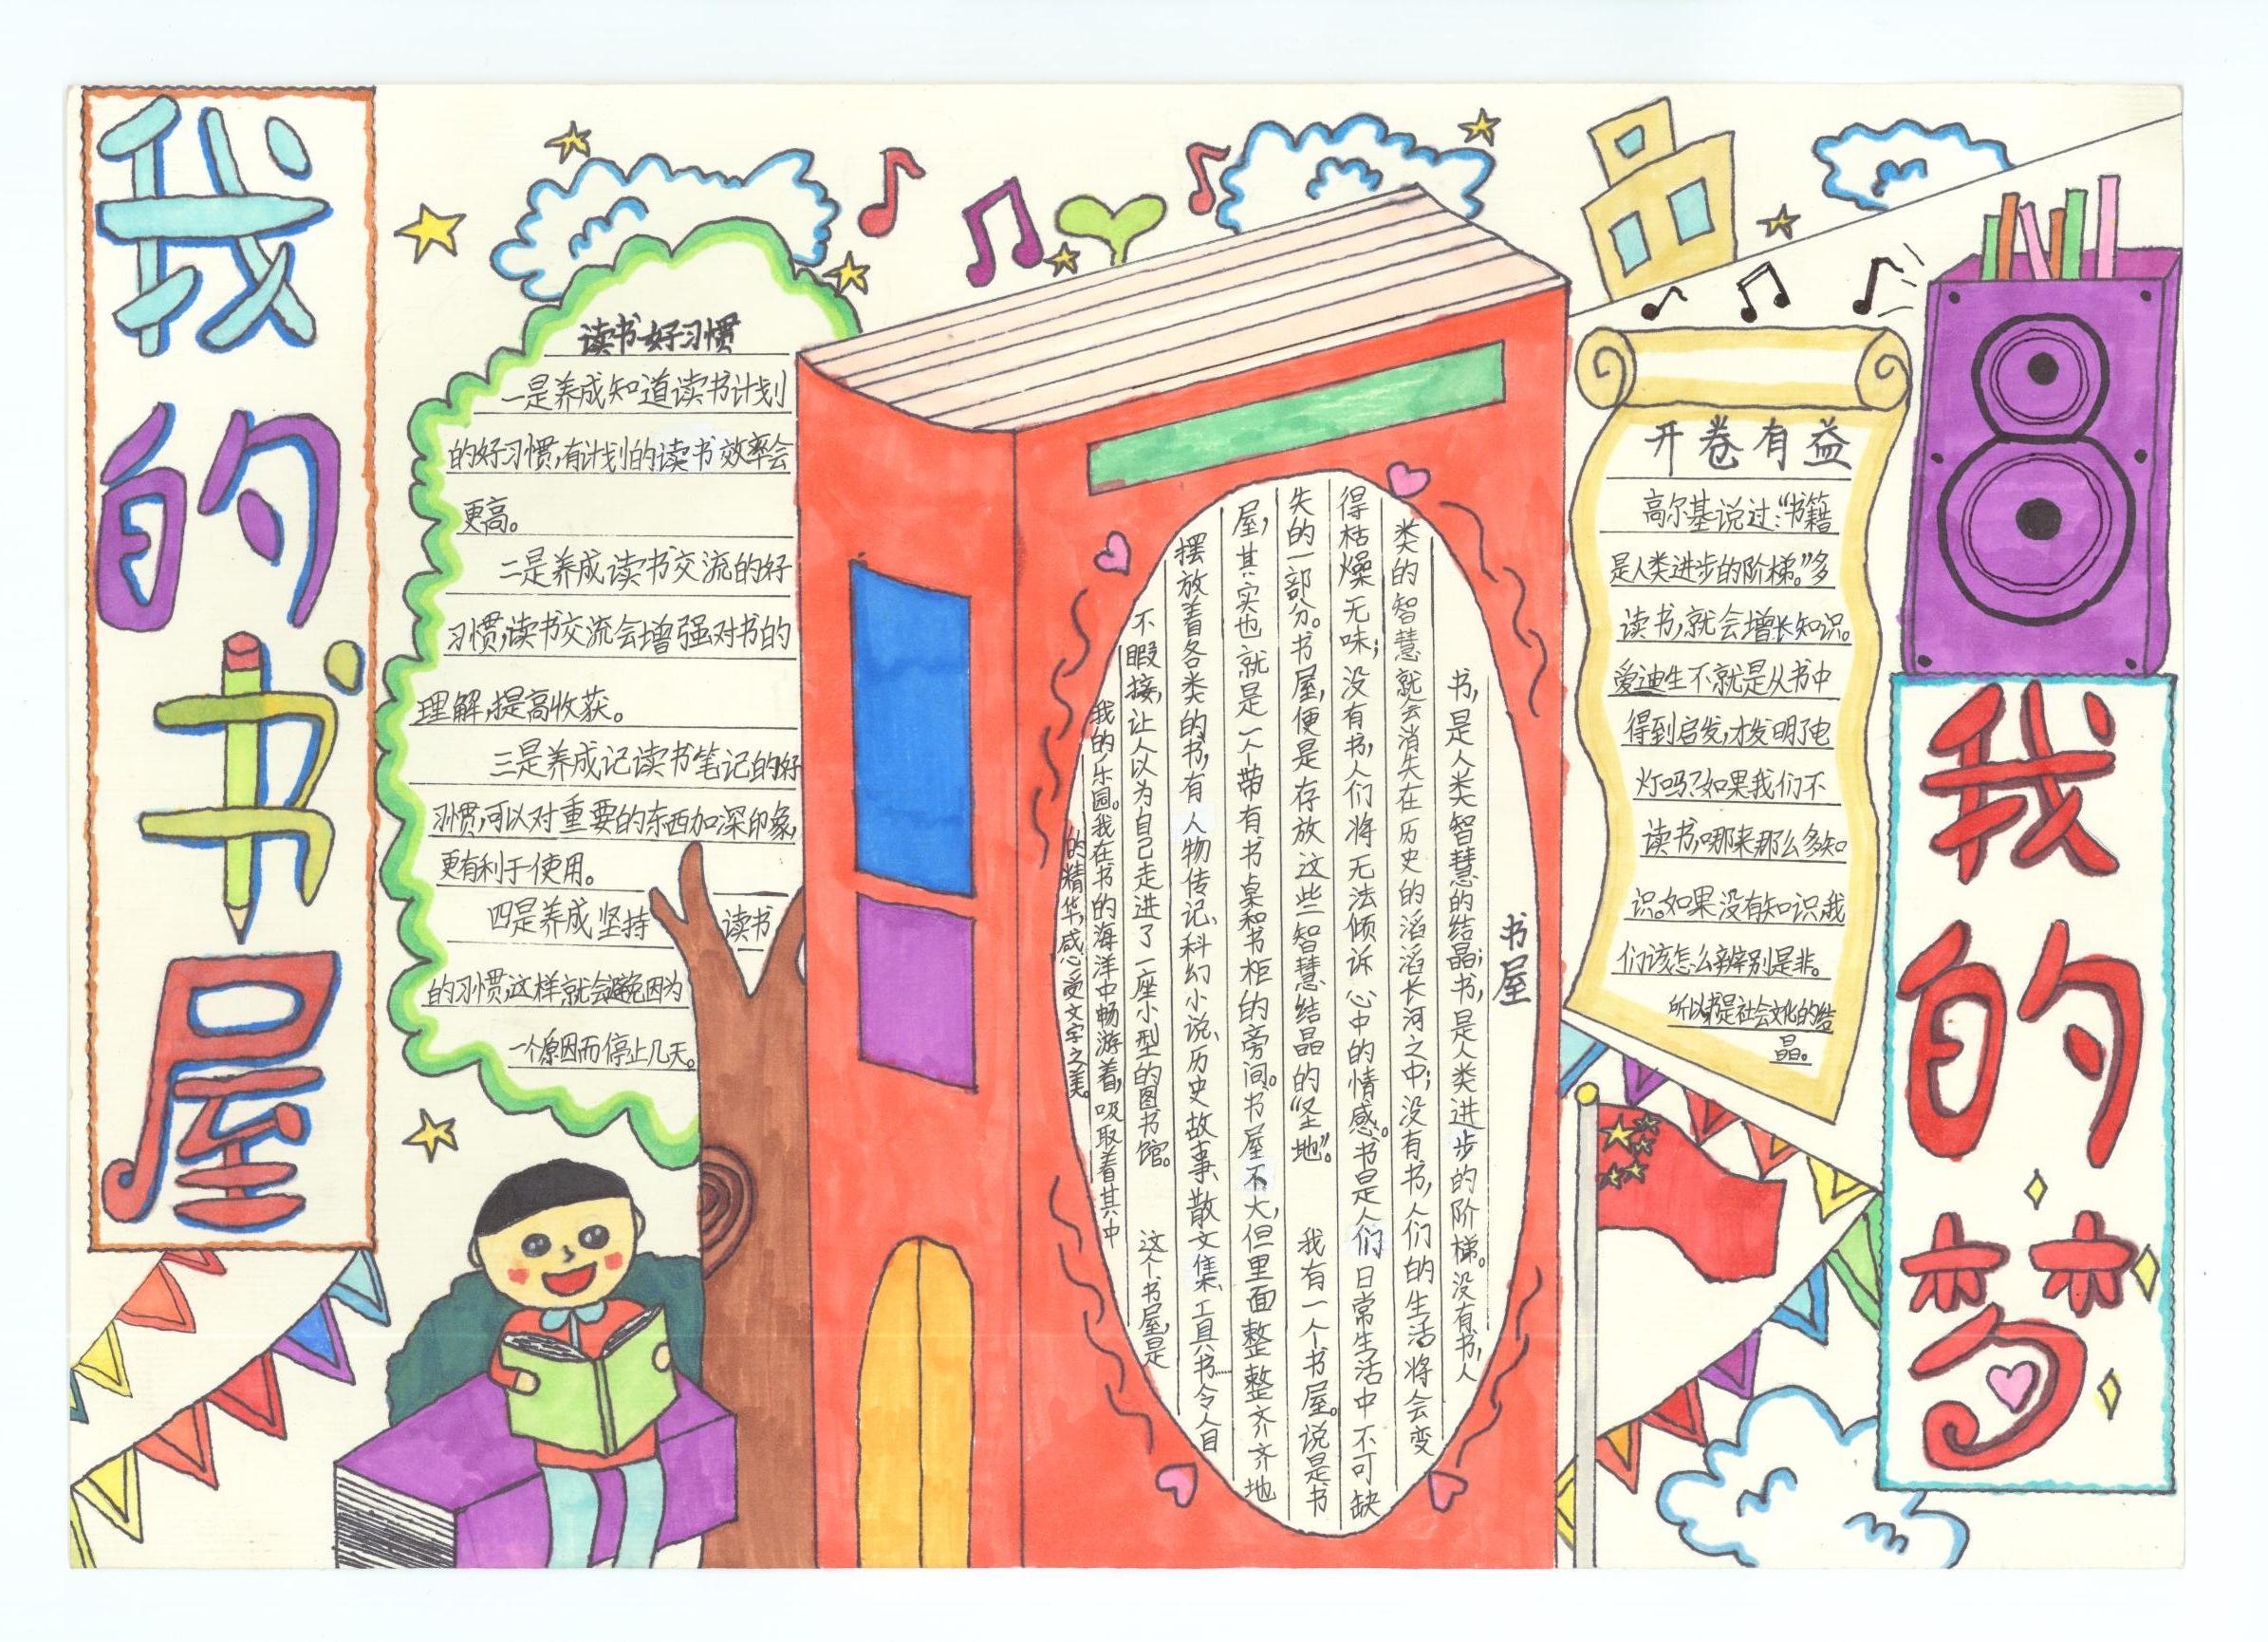 我的书屋
读书好习惯
一是养成知道读书计划
的好习惯,有计划的读书效率会
更高。
二是养成读书交流的好
习惯,读书交流会增强对书的
理解,提高收获。
三是养成记读书笔记的好
习惯,可以对重要的东西加深印象,
更有利于使用。
四是养成坚持读书
的习惯,这样就会避免因为
一个原因而停止几天。
书屋
书,是人类智慧的结晶;书,是人类进步的阶梯。没有书,人
类的智慧就会消失在历史的滔滔长河之中;没有书,人们的生活将会变
得枯燥无味;没有书,人们将无法倾诉心中的情感。书是人们日常生活中不可缺
失的一部分。书屋,便是存放这些智慧结晶的“圣地”。 我有一个书屋。说是书
屋,其实也就是一个带有书桌和书柜的旁间。书屋不大,但里面整整齐齐地
摆放着各类的书,有人物传记、科幻小说、历史故事、散文集、工具书……令人目
不暇接,让人以为自己走进了一座小型的图书馆。 这个书屋,是
我的乐园。我在书的海洋中畅游着,吸取着其中
的精华,感受文字之美。
开卷有益
高尔基说过:“书籍
是人类进步的阶梯。”多
读书,就会增长知识。
爱迪生不就是从书中
得到启发,才发明了电
灯吗?如果我们不
读书,哪来那么多知
识。如果没有知识,我
们该怎么辨别是非。
所以书是社会文化的结
晶。
我的梦